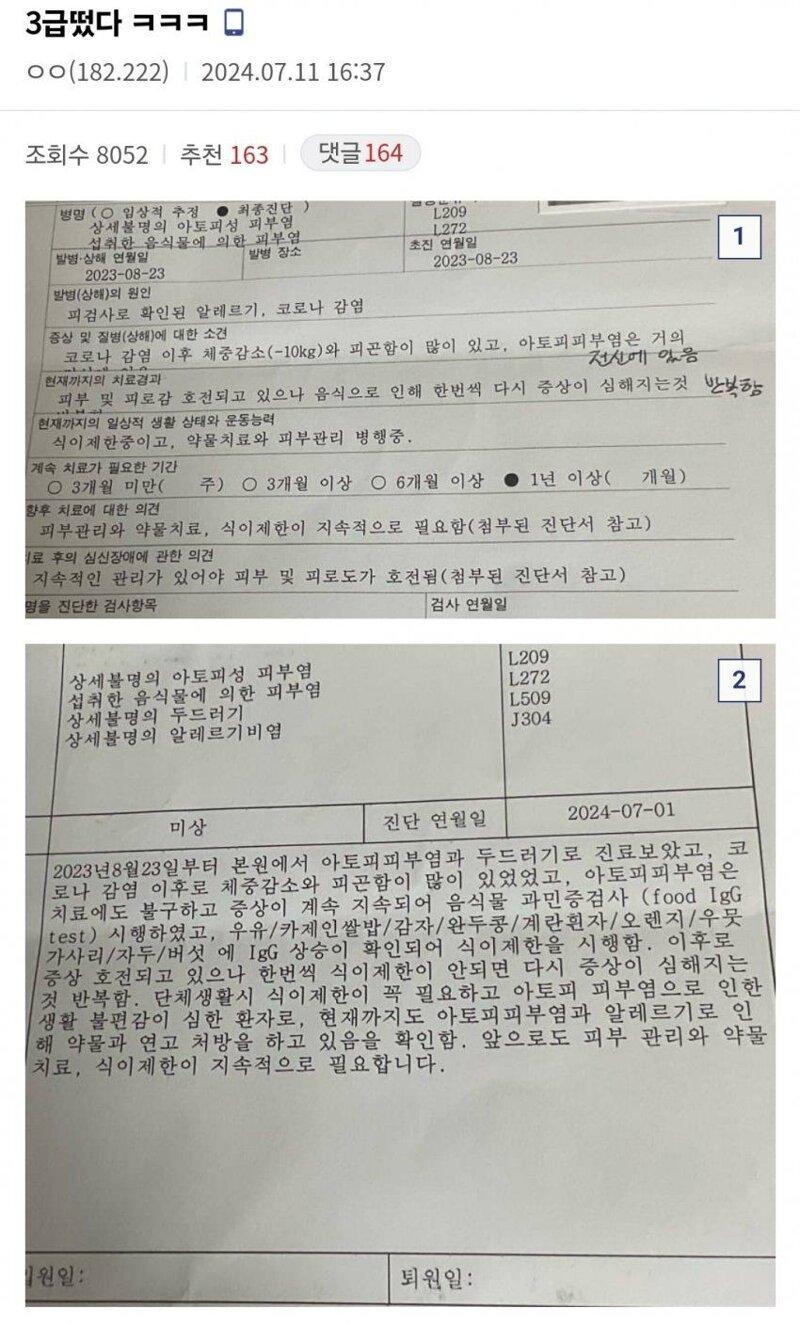 3급떴다 ㅋㅋㅋ
ㅇㅇ(182.222) | 2024.07.11 16:37
조회수 8052 | 추천 163 | 댓글 164
1
병명 ( ○ 임상적 추정 ● 최종진단 )
상세불명의 아토피성 피부염 L209
섭취한 음식물에 의한 피부염 L272
발병·상해 연월일 발병 장소 초진 연월일
2023-08-23 2023-08-23
발병(상해)의 원인
피검사로 확인된 알레르기, 코로나 감염
증상 및 질병(상해)에 대한 소견
코로나 감염 이후 체중감소(-10kg)와 피곤함이 많이 있고, 아토피피부염은 거의
전신에 있음
현재까지의 치료경과
피부 및 피로감 호전되고 있으나 음식으로 인해 한번씩 다시 증상이 심해지는것 반복함
현재까지의 일상적 생활 상태와 운동능력
식이제한중이고, 약물치료와 피부관리 병행중.
계속 치료가 필요한 기간
○ 3개월 미만( 주) ○ 3개월 이상 ○ 6개월 이상 ● 1년 이상( 개월)
향후 치료에 대한 의견
피부관리와 약물치료, 식이제한이 지속적으로 필요함(첨부된 진단서 참고)
료 후의 심신장애에 관한 의견
지속적인 관리가 있어야 피부 및 피로도가 호전됨(첨부된 진단서 참고)
명을 진단한 검사항목 검사 연월일
2
상세불명의 아토피성 피부염 L209
섭취한 음식물에 의한 피부염 L272
상세불명의 두드러기 L509
상세불명의 알레르기비염 J304
미상 진단 연월일 2024-07-01
2023년8월23일부터 본원에서 아토피피부염과 두드러기로 진료보았고, 코
로나 감염 이후로 체중감소와 피곤함이 많이 있었었고, 아토피피부염은
치료에도 불구하고 증상이 계속 지속되어 음식물 과민증검사 (food IgG
test) 시행하였고, 우유/카제인쌀밥/감자/완두콩/계란흰자/오렌지/우뭇
가사리/자두/버섯 에 IgG 상승이 확인되어 식이제한을 시행함. 이후로
증상 호전되고 있으나 한번씩 식이제한이 안되면 다시 증상이 심해지는
것 반복함. 단체생활시 식이제한이 꼭 필요하고 아토피 피부염으로 인한
생활 불편감이 심한 환자로, 현재까지도 아토피피부염과 알레르기로 인
해 약물과 연고 처방을 하고 있음을 확인함. 앞으로도 피부 관리와 약물
치료, 식이제한이 지속적으로 필요합니다.
입원일: 퇴원일: